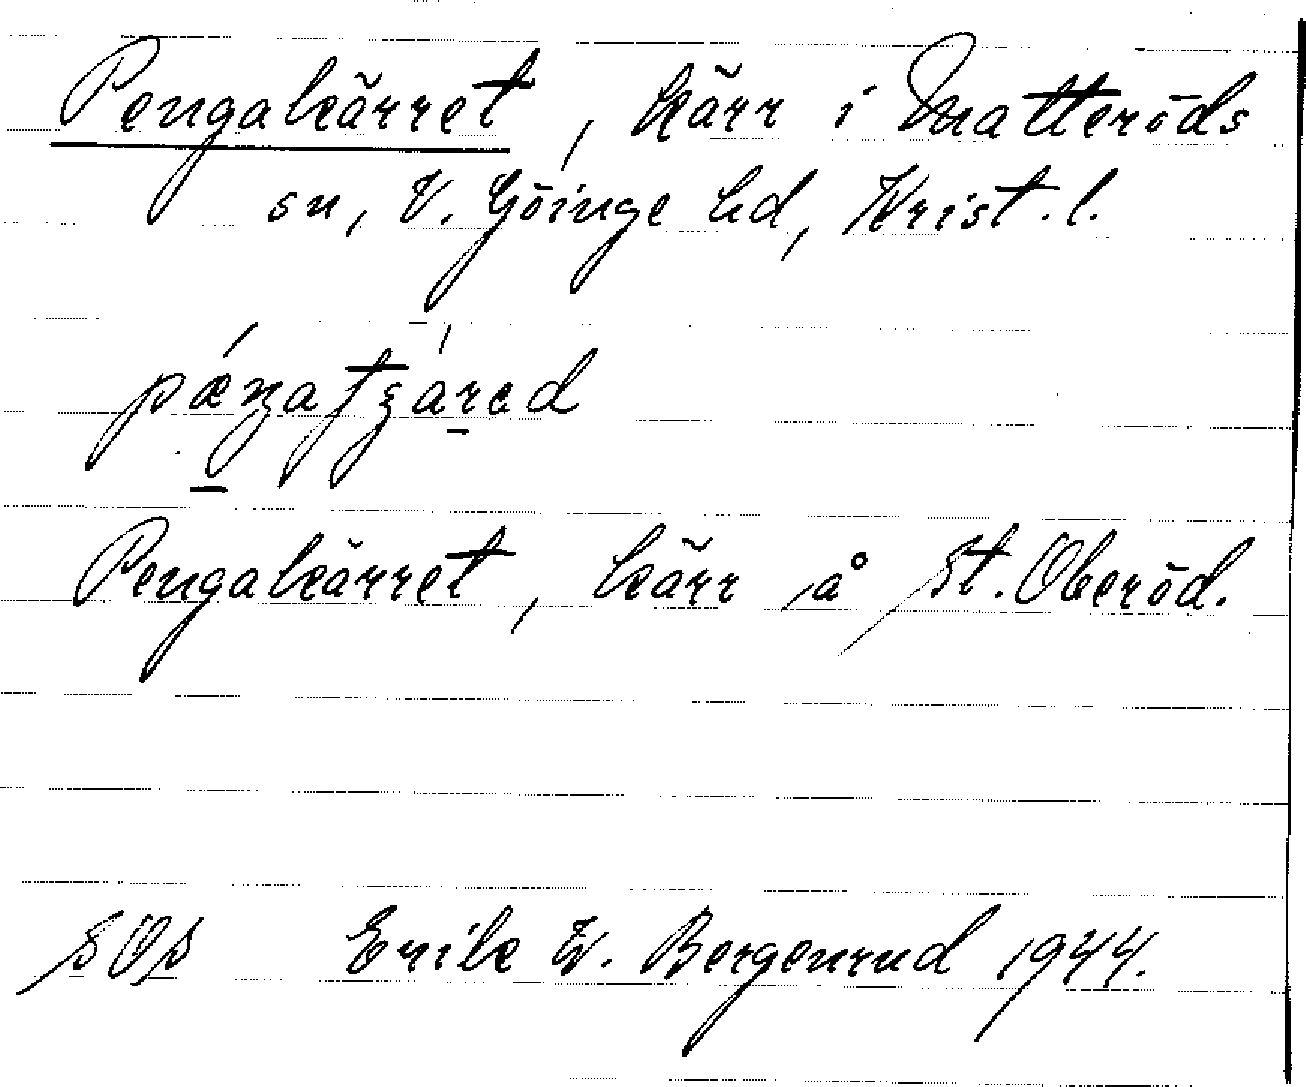 Pengakärret, kärr i Matteröds
sn, V. Göinge hd, Krist. l.
Pengakärret, kärr å St. Oberöd.
SOS Erik W. Bergenrud 1944.